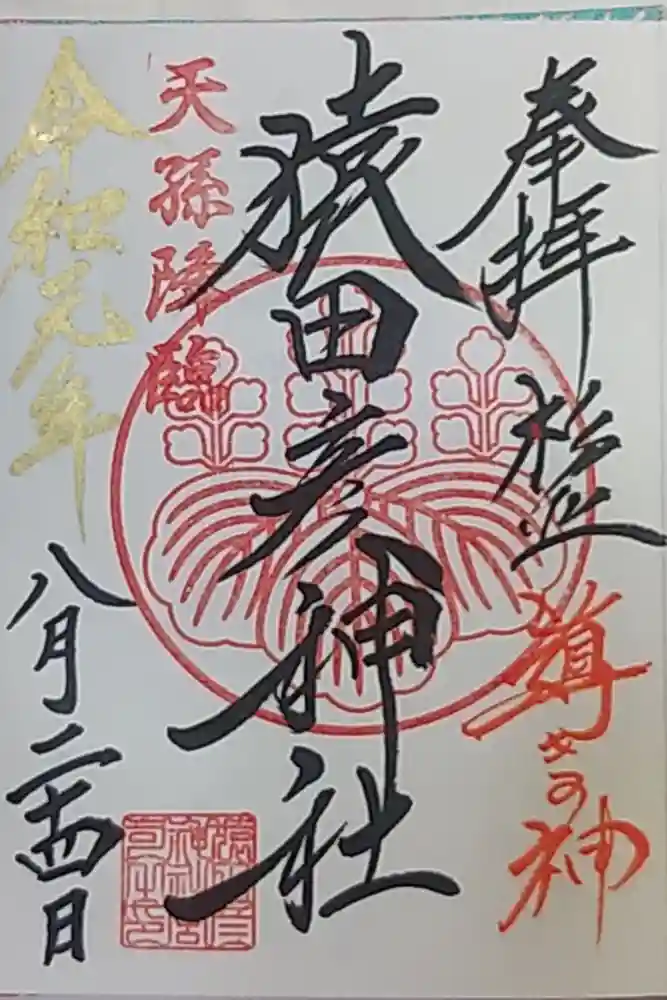 奉拝
導きの神
猿田彦神社
天孫降臨
令和元年
八月二十四日